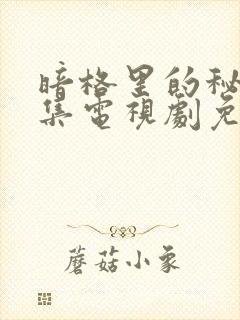 暗格里的秘
集电視劇免
蘑菇小象